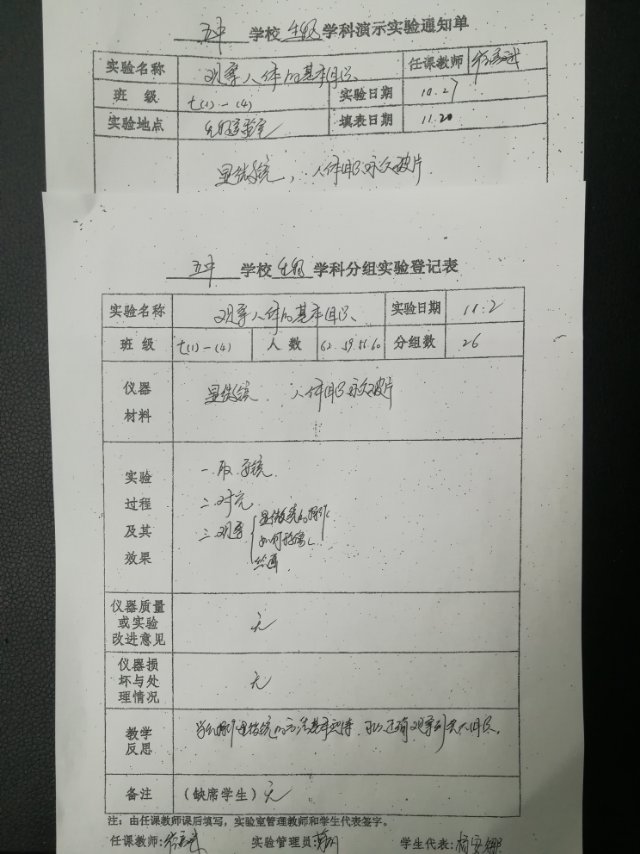 五中 学校 生物 学科演示实验通知单
实验名称 观察人体的基本组织 任课教师
班 级 七(1)-(4) 实验日期 10.27
实验地点 生物实验室 填表日期 11.20
显微镜, 人体组织永久玻片
五中 学校 生物 学科分组实验登记表
实验名称 观察人体的基本组织 实验日期 11.2
班 级 七(1)-(4) 人 数 62. 59. 61. 60 分组数 26
仪器
材料
显微镜 人体组织永久玻片
实验
过程
及其
效果
一.取
二.对光
三.观察
仪器质量
或实验
改进意见
无
仪器损
坏与处
理情况
无
教学
反思
显微镜的方法基本
备注 (缺席学生) 无
注:由任课教师课后填写,实验室管理教师和学生代表签字。
任课教师: 实验管理员: 学生代表: